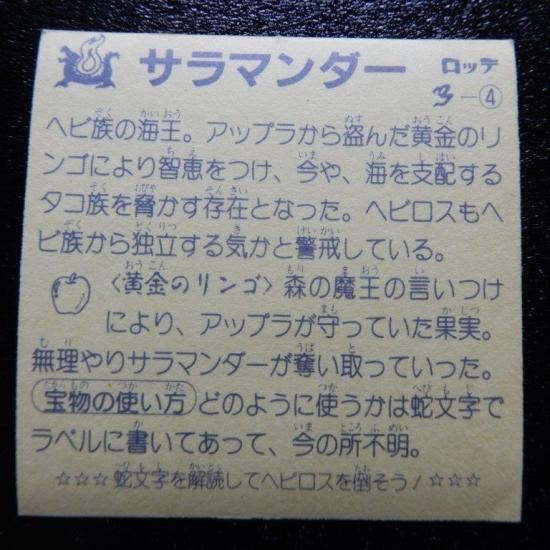 サラマンダー ロッテ
3-④
ヘビ族の海王。アップラから盗んだ黄金のリ
ンゴにより智恵をつけ、今や、海を支配する
タコ族を脅かす存在となった。ヘビロスもヘ
ビ族から独立する気かと警戒している。
〈黄金のリンゴ〉森の魔王の言いつけ
により、アップラが守っていた果実。
無理やりサラマンダーが奪い取っていった。
宝物の使い方 どのように使うかは蛇文字で
ラベルに書いてあって、今の所不明。
☆☆☆蛇文字を解読してヘビロスを倒そう!☆☆☆